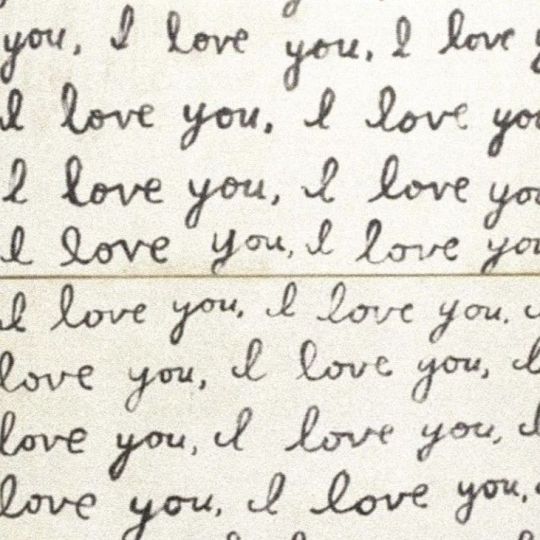 you, I love you, I love
I love you, I love you
I love you, I love you
I love you, I love you
I love you, I love you,
love you, I love you, I
love you, I love you,
love you, I love you,